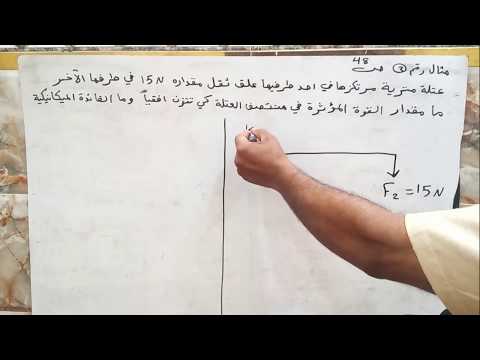 مثال رقم ③ ص 48
عتلة منزية مرتكزها في احد طرفيها علق ثقل مقداره 15N في طرفها الآخر
ما مقدار القوة المؤثرة في منتصف العتلة كي تتزن افقياً وما الفائدة الميكانيكية
F₂ = 15N